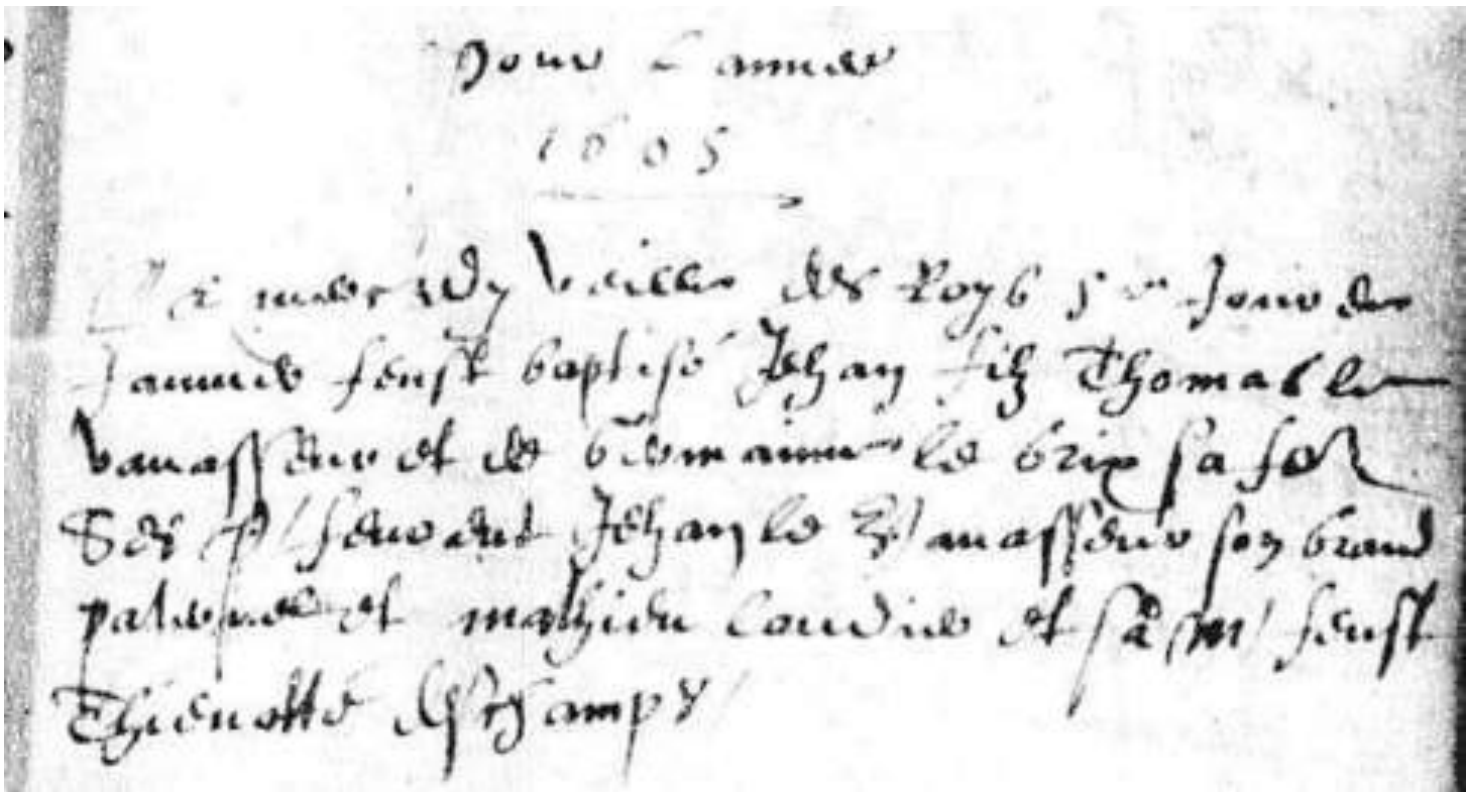 Pour l'annee
1605
Le mercredy veille des Roys 5e jour de
Janvier feust baptisé Jehan filz Thomas le
vavasseur et de Germainne le brix sa fe
Ses p/ feurent Jehan le Vavasseur son grand
paternel et mathieu et sa m/ feust
Thienotte deschamps